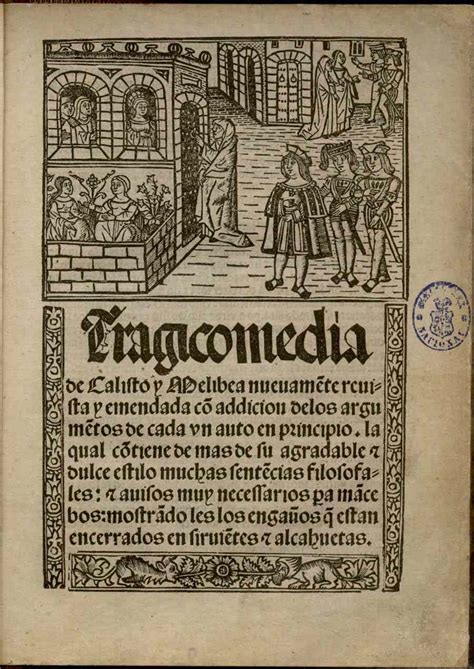 Tragicomedia
de Calisto y Melibea nueuamẽte reui-
sta y emendada cõ addicion delos argu
mẽtos de cada vn auto en principio. la
qual cõtiene de mas de su agradable ⁊
dulce estilo muchas sentẽcias filosofa-
les: ⁊ auisos muy necessarios pa mãce
bos: mostrãdo les los engaños q̃ estan
encerrados en siruiẽtes ⁊ alcahuetas.
NACIONAL